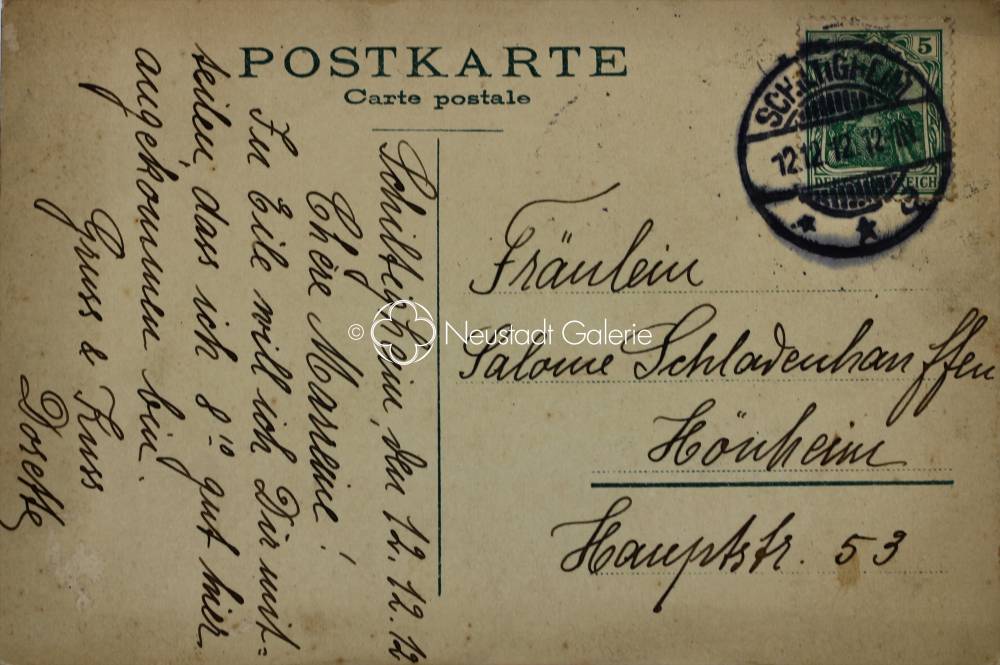 POSTKARTE
Carte postale
Schiltigheim, den 12.12.12
Chère Marraine!
In Eile will ich Dir mit=
teilen, dass ich 8¹⁰ gut hier
angekommen bin.
Gruss & Kuss
Dosette
5
SCHILTIGHEIM
12.12.12.12-1N
* * 3
REICH
Fräulein
Salome Schladenhauffen
Hönheim
Hauptstr. 53
© Neustadt Galerie